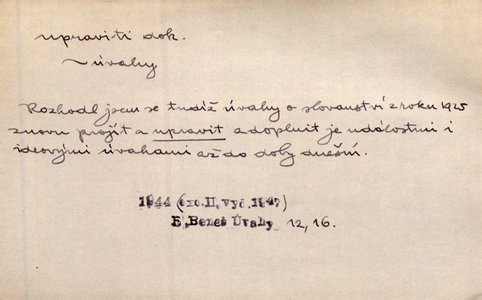 upraviti dok.
~ úvahy
Rozhodl jsem se tudíž úvahy o slovanství z roku 1925
znovu projít a upravit a doplnit je událostmi i
ideovými úvahami až do doby dnešní.
1944 (exc.II, vyč.1947)
E.Beneš Úvahy 12, 16.